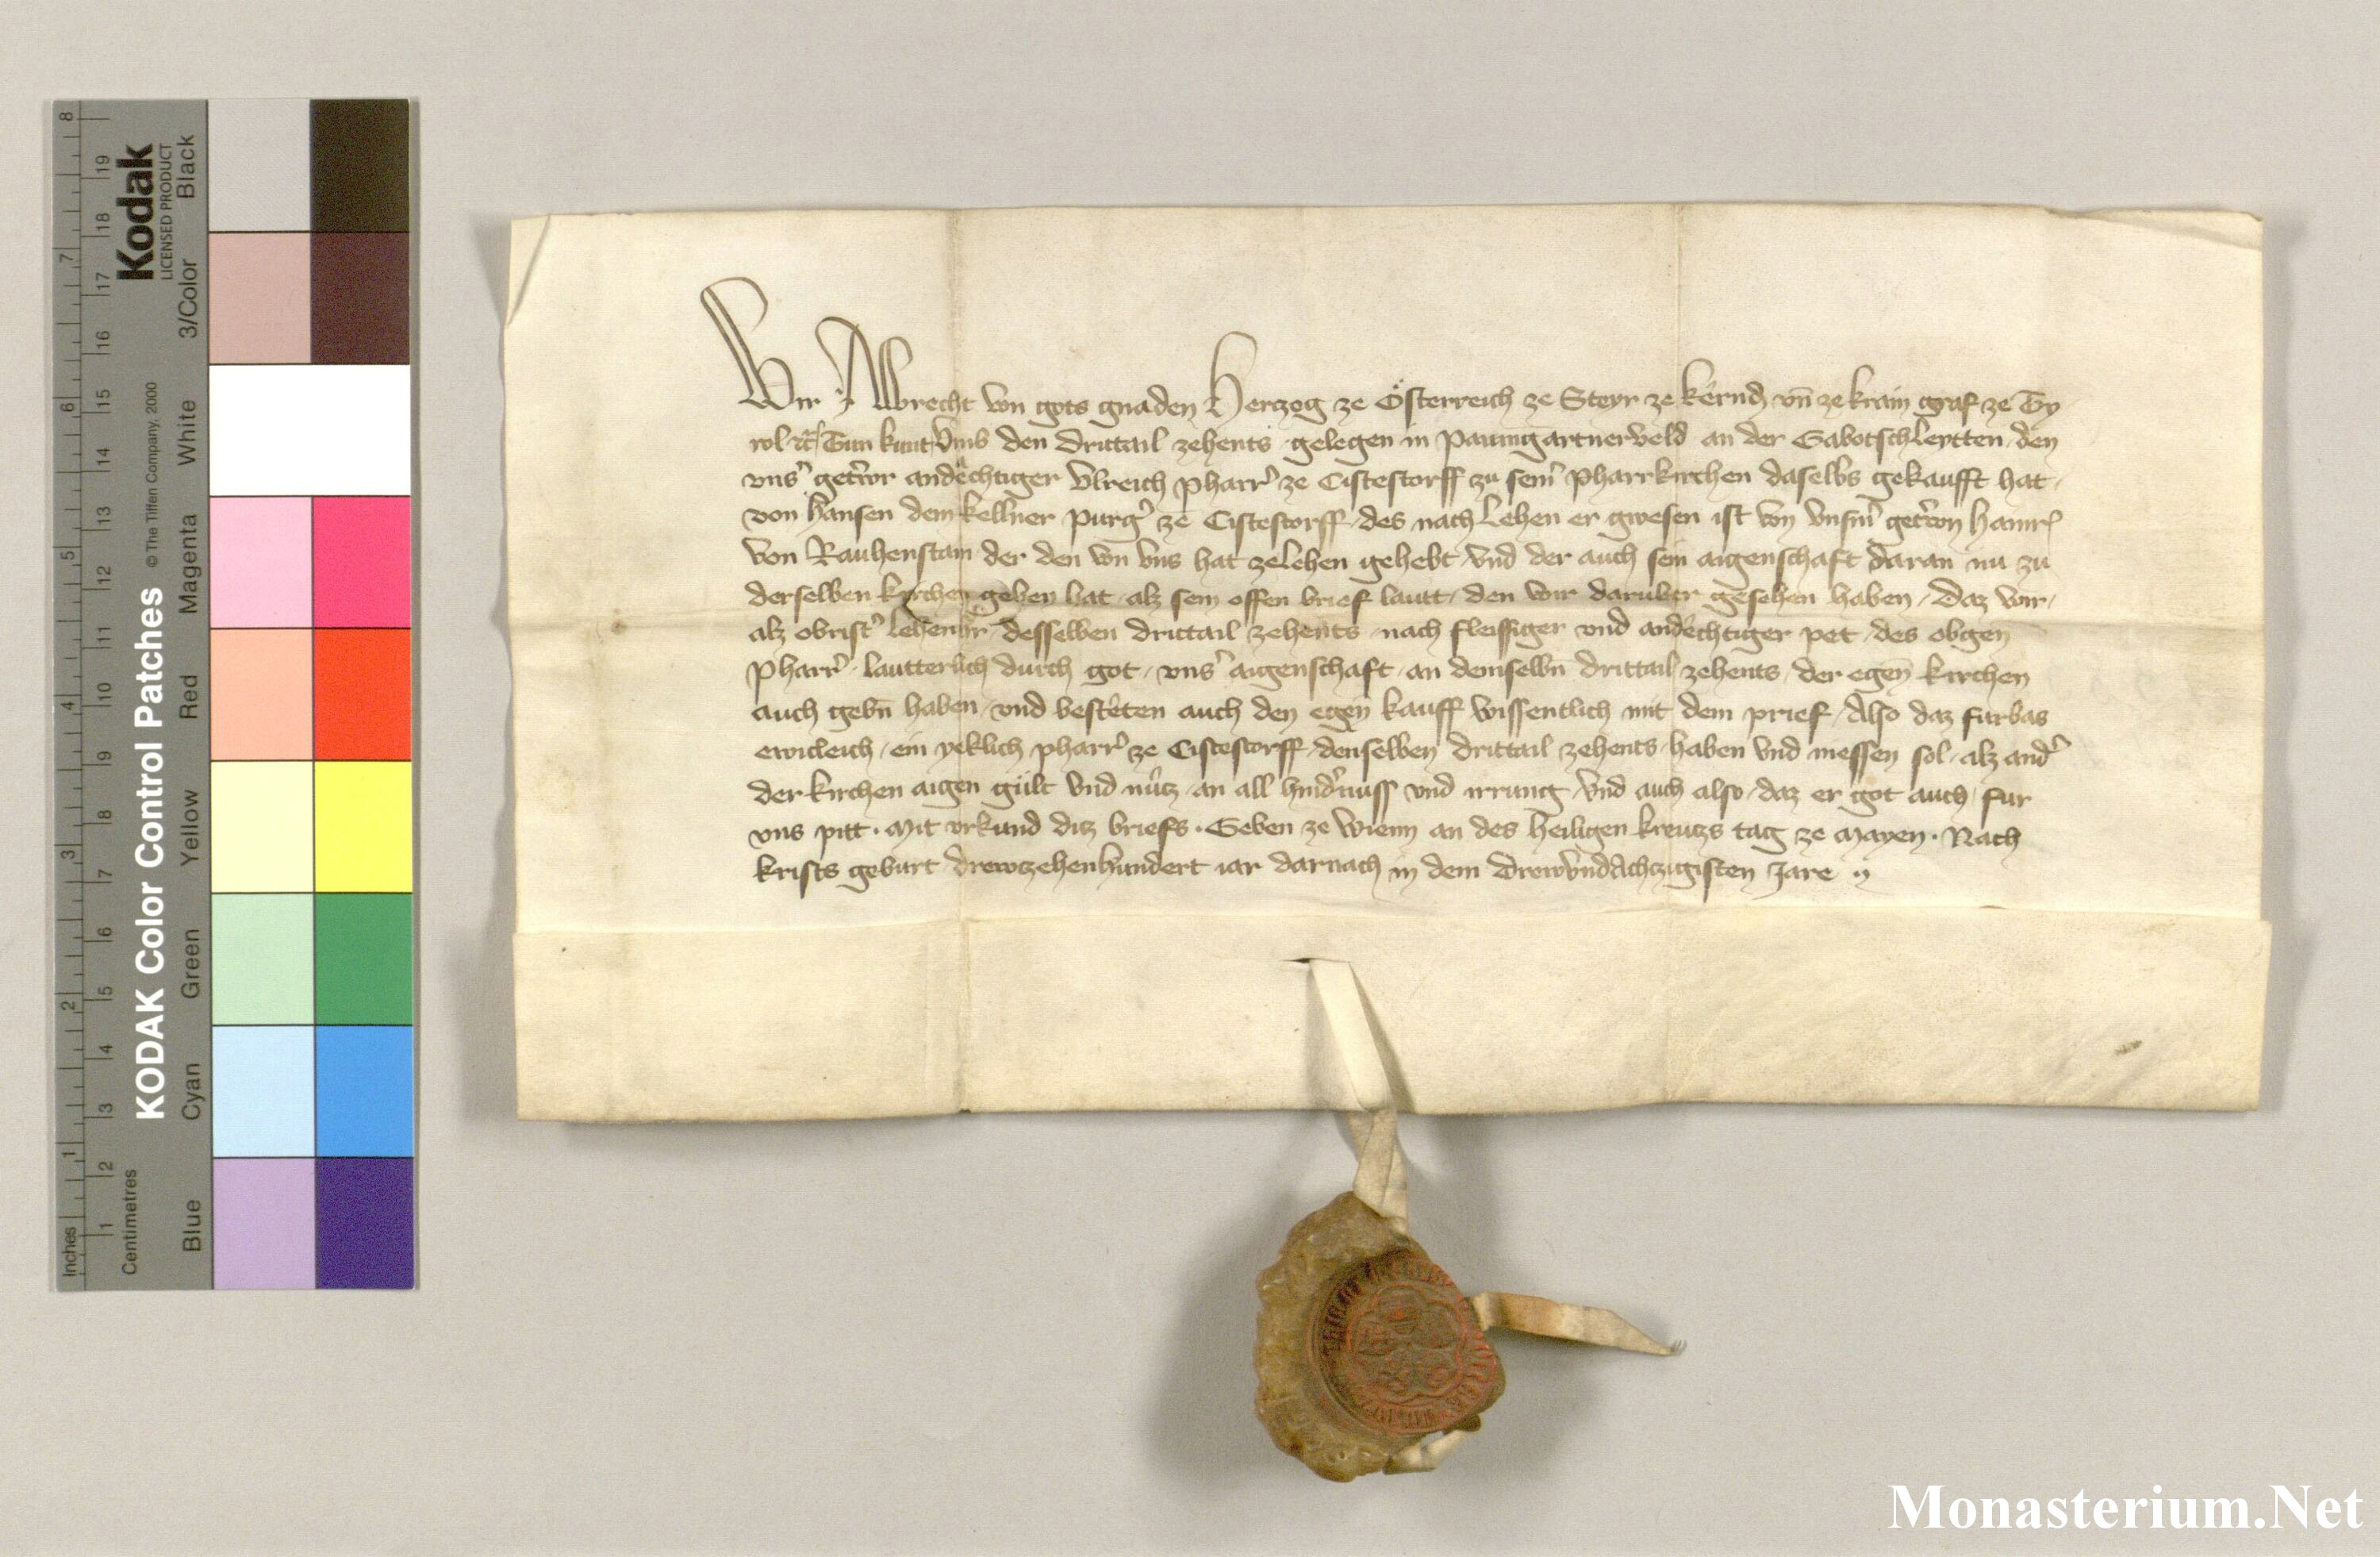 Wir Albrecht von gots gnaden Herczog ze Österreich ze Steyr ze Kërnden vn̄ ze krain graf ze Ty
rol ꝛc̄ Tun kunt Vmb den drittail zehents gelegen in Paumgartnerveld an der Gabotschleytten den
vnsˀ getrẘr andëchtiger Vlreich pharrˀ ze Cistestorff zu seinˀ pharrkirchen daselbs gekaufft hat
von hansen dem kellner purgˀ ze Cistestorff des nach Lehen er gwesen ist von vnsm̄ getrẘn hainrˀ
von Rauhenstain der den von vns hat zelehen gehebt vnd der auch sein aigenschaft daran nu zu
derselben kirchen geben hat alz sein offen brief lautt den wir daruber gesehen haben daz wir
alz obristˀ lehenhˀr desselben drittail zehents nach fleissiger vnd andëchtiger pet des obgen̄
pharrˀ lautterlich durch got vnsˀ aigenschaft an demselbn̄ drittail zehents der egen̄ kirchen
auch gebn̄ haben vnd bestëten auch den egen̄ kauff wissentlich mit dem prief Also daz furbas
ewicleich ein yeklich pharrˀ ze Cistestorff denselben drittail zehents haben vnd niessen sol alz andˀ
der kirchen aigen gült vnd nücz an all hindˀnuss vnd irrung vnd auch also daz er got auch fur
vns pitt. Mit vrkund ditz briefs. Geben ze Wienn an des heiligen kreutzs tag ze Mayen. Nach
krists geburt drewczehenhundert iar darnach in dem drewvndAchczigisten Jare
KODAK Color Control Patches
© The Tiffen Company, 2000
Kodak
LICENSED PRODUCT
Inches 1 2 3 4 5 6 7 8
Centimetres 1 2 3 4 5 6 7 8 9 10 11 12 13 14 15 16 17 18 19
Blue Cyan Green Yellow Red Magenta White 3/Color Black
Monasterium.Net